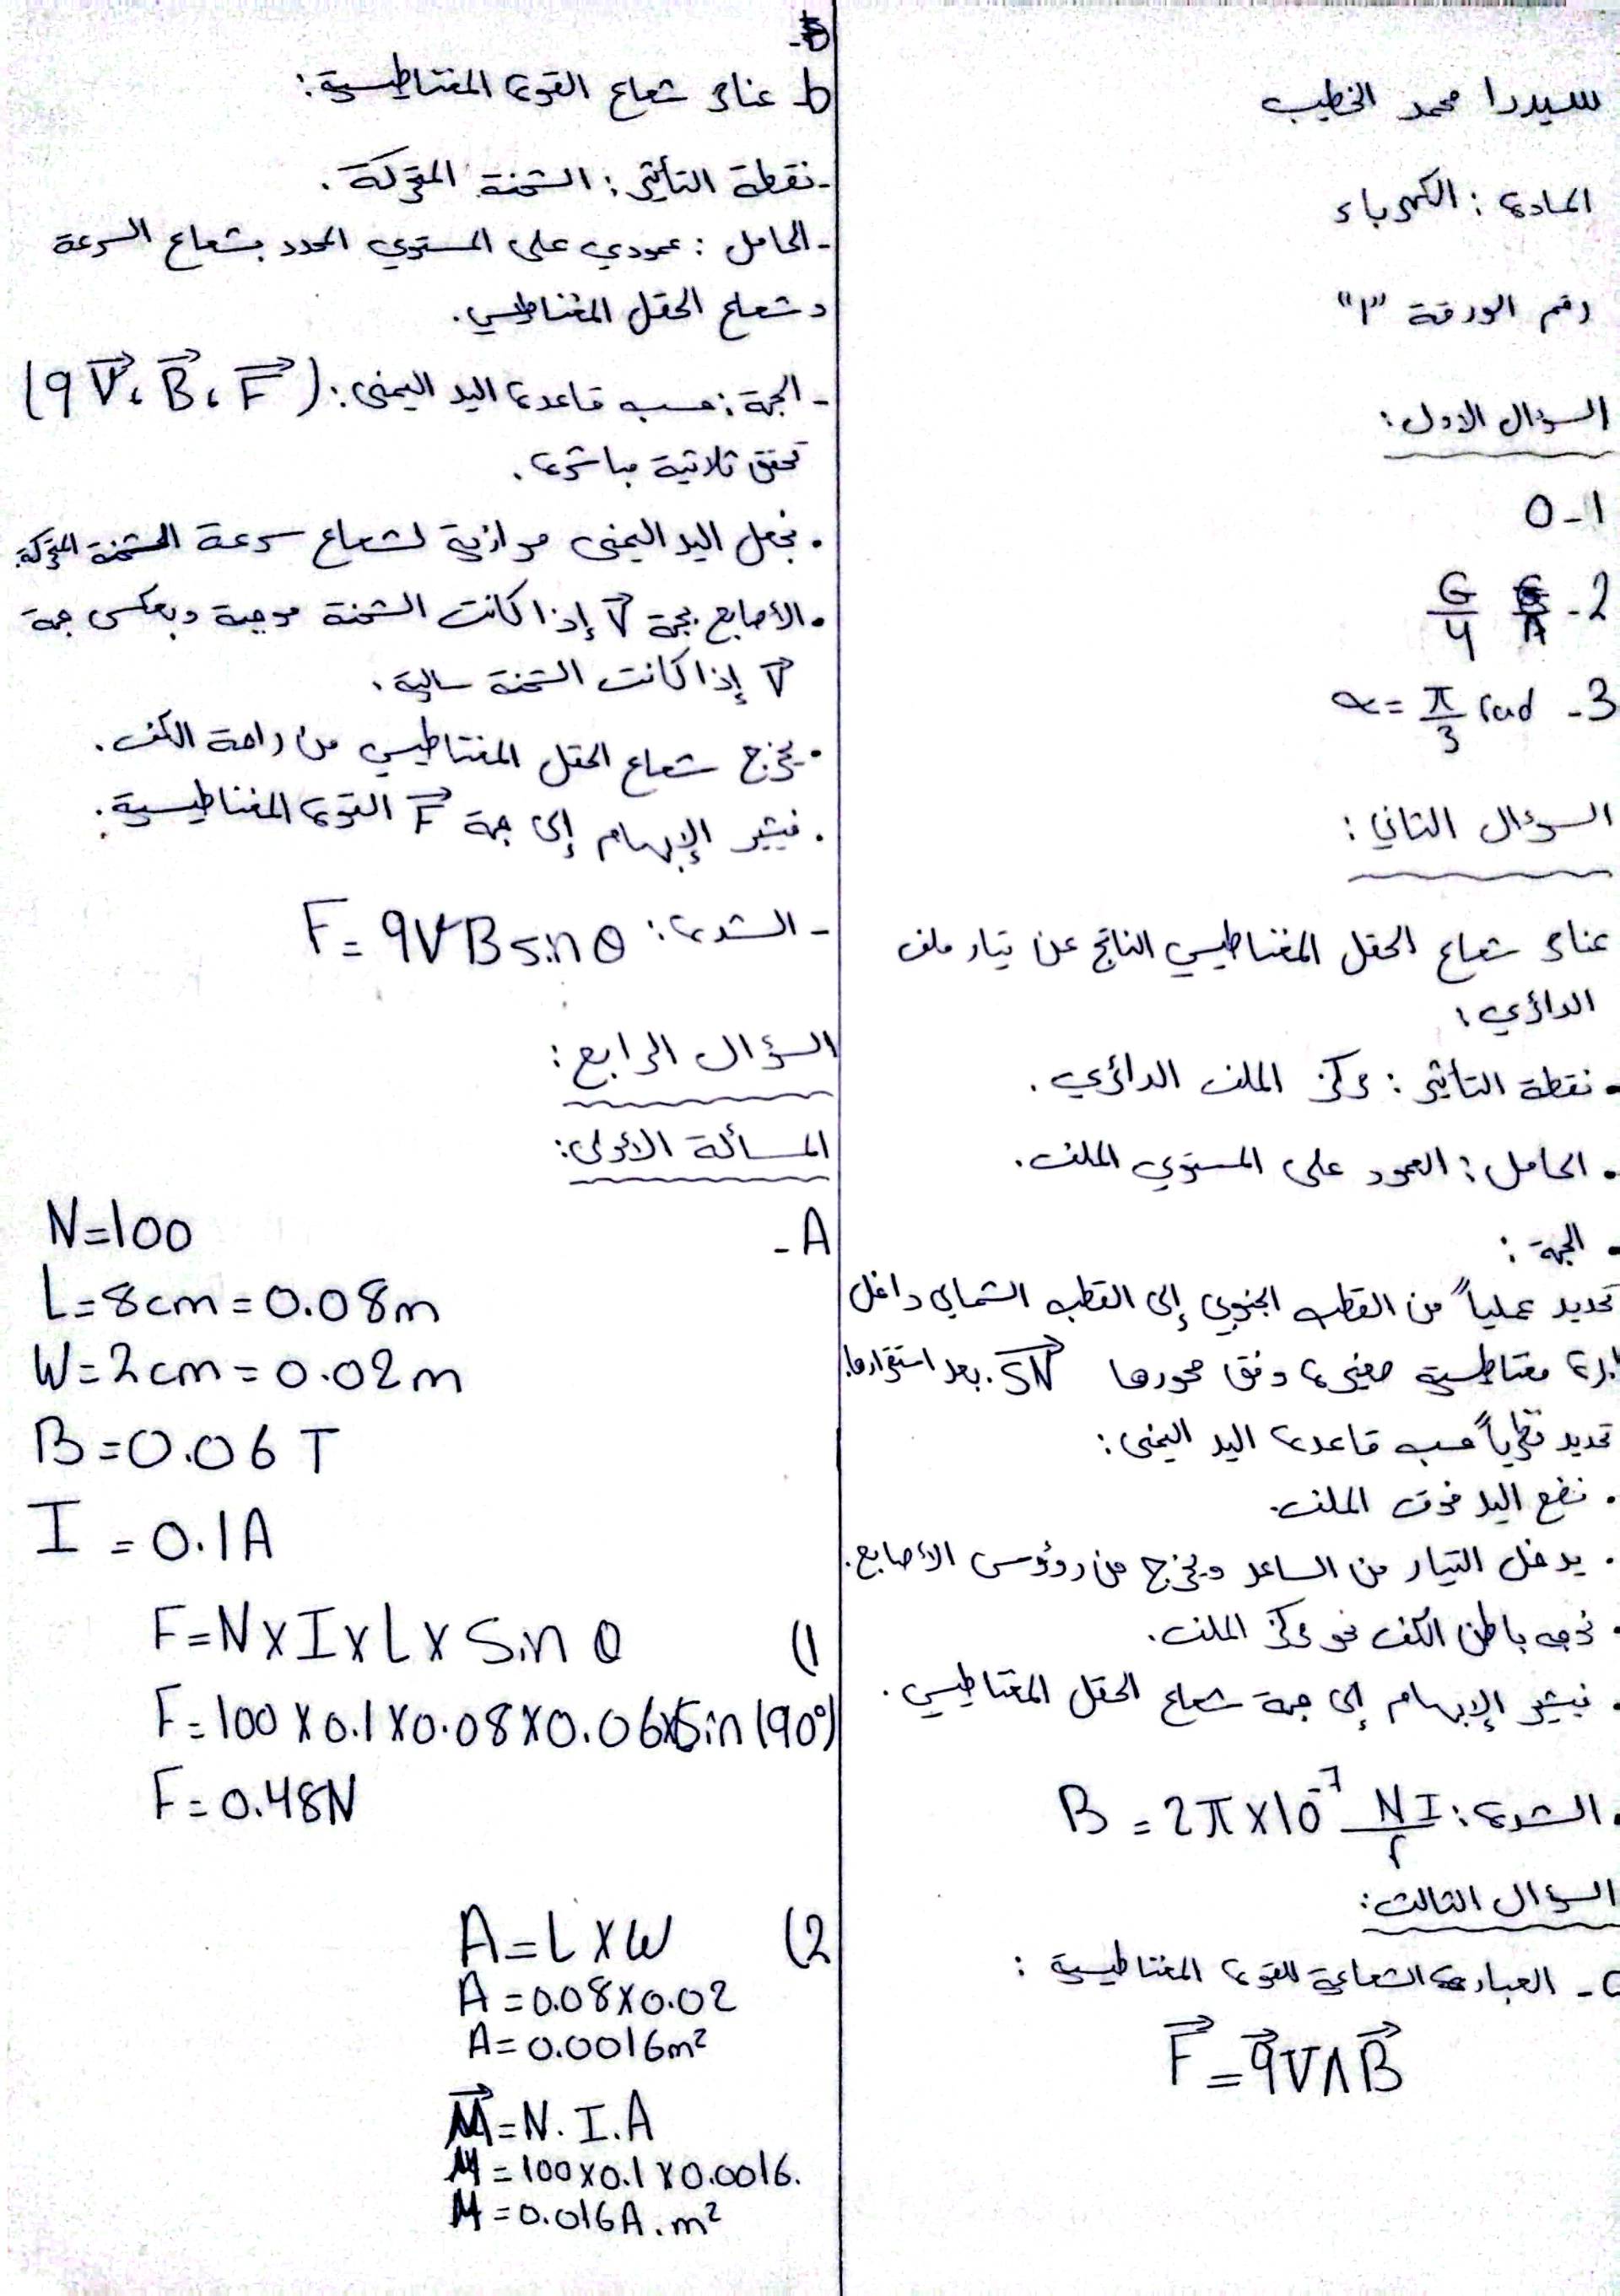 سيدرا محمد الخطيب
المادة : الكهرباء
رقم الورقة "1"
السؤال الاول :
1- 0
2- G/4
3- α = π/3 rad
السؤال الثاني :
عناصر شعاع الحقل المغناطيسي الناتج عن تيار ملف
الدائري :
• نقطة التأثير : مركز الملف الدائري .
• الحامل : العمود على المستوي الملف .
• الجهة :
تحديد عملياً من القطب الجنوبي إلى القطب الشمالي داخل
إبرة مغناطيسية صغيرة وفق محورها SN⃗ . بعد استقرارها .
تحديد نظرياً حسب قاعدة اليد اليمنى :
• نضع اليد فوق الملف .
• يدخل التيار من الساعد ويخرج من رؤوس الأصابع .
• نوجه باطن الكف نحو مركز الملف .
• فيشير الإبهام إلى جهة شعاع الحقل المغناطيسي .
• الشدة : B = 2π×10⁻⁷ NI/r
السؤال الثالث :
a- العبارة الشعاعية للقوة المغناطيسية :
F⃗ = q⃗V Λ B⃗
b- عناصر شعاع القوة المغناطيسية :
- نقطة التأثير : الشحنة المتحركة .
- الحامل : عمودي على المستوي المحدد بشعاع السرعة
وشعاع الحقل المغناطيسي .
- الجهة : حسب قاعدة اليد اليمنى : (qV⃗، B⃗، F⃗)
تحقق ثلاثية مباشرة .
• نجعل اليد اليمنى موازية لشعاع سرعة الشحنة المتحركة .
• الأصابع بجهة V⃗ إذا كانت الشحنة موجبة وبعكس جهة
V⃗ إذا كانت الشحنة سالبة .
• يخرج شعاع الحقل المغناطيسي من راحة الكف .
• فيشير الإبهام إلى جهة F⃗ القوة المغناطيسية .
- الشدة : F = qVB sin θ
السؤال الرابع :
المسألة الأولى :
A-
N=100
L=8cm=0.08m
W=2cm=0.02m
B=0.06 T
I=0.1A
1) F=N×I×L×Sin θ
F=100×0.1×0.08×0.06×Sin(90°)
F=0.48N
2) A=L×W
A=0.08×0.02
A=0.0016m²
M⃗=N.I.A
M=100×0.1×0.0016.
M=0.016A.m²